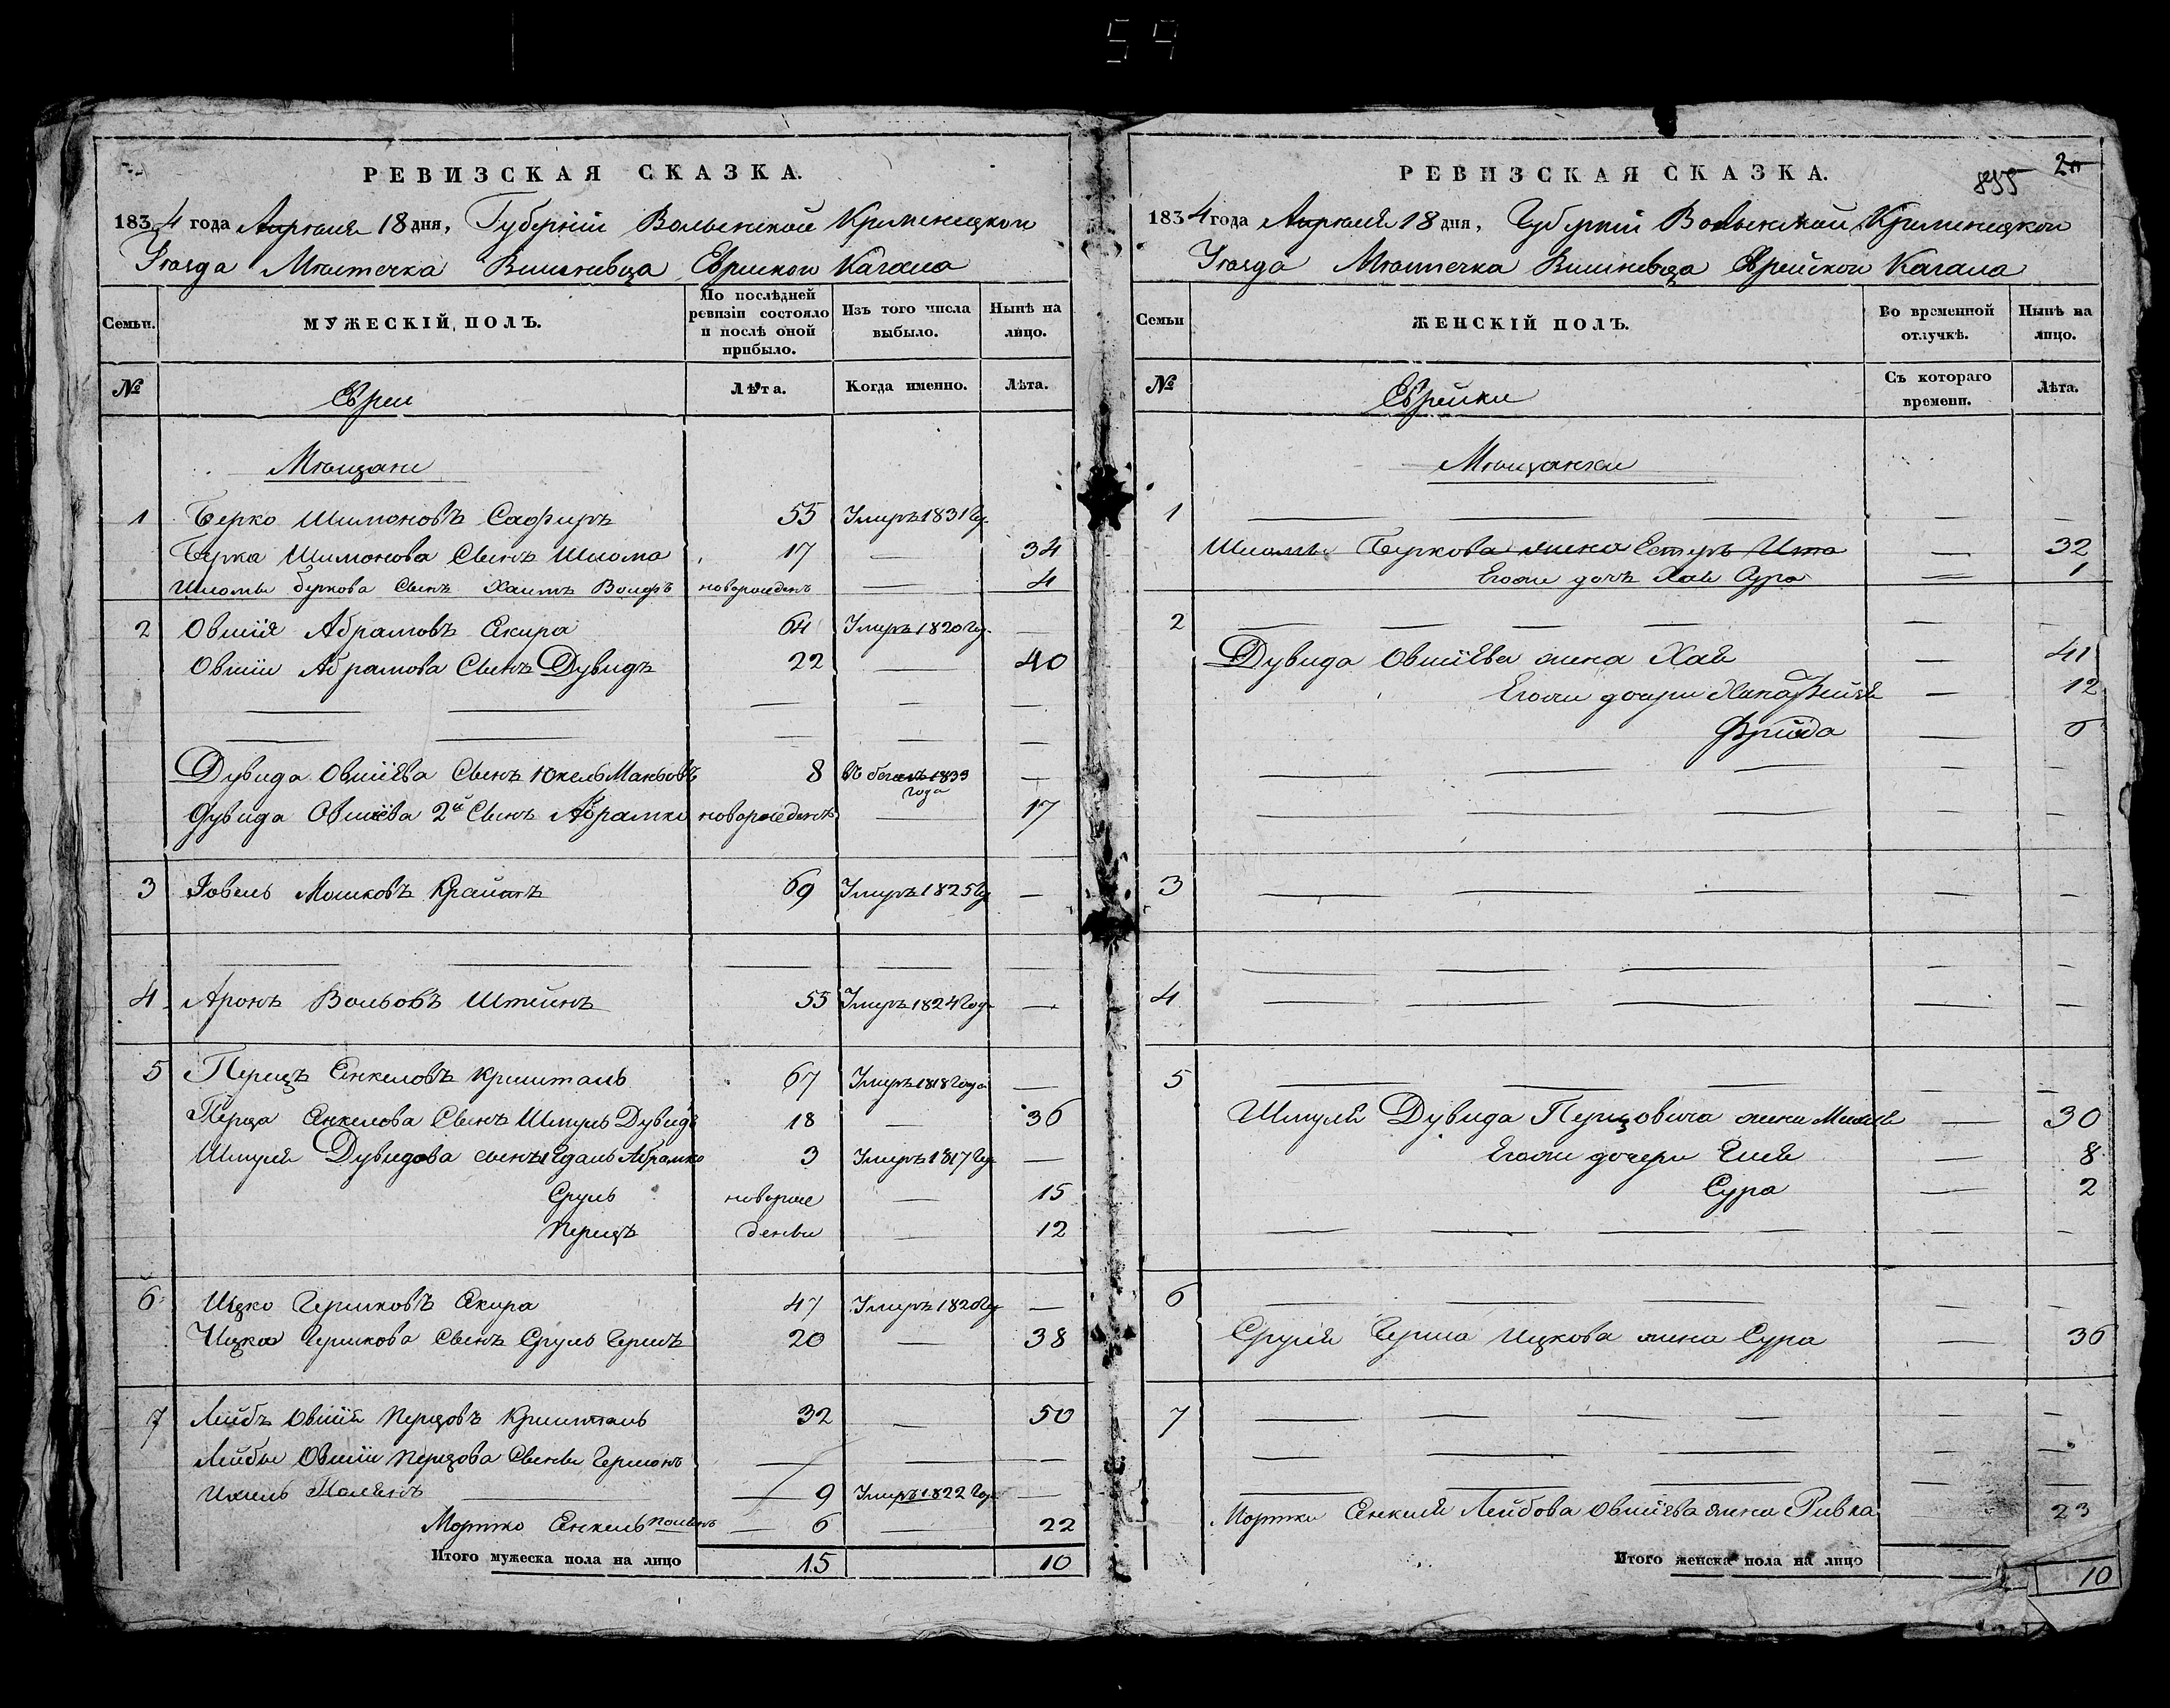 59
РЕВИЗСКАЯ СКАЗКА.
1834 года Апреля 18 дня, Губерніи Волынской Кременецкого
Уезда Местечка Вишневца Еврейского Кагала
Семьи.
МУЖЕСКІЙ ПОЛЪ.
По послѣдней ревизіи состояло и послѣ оной прибыло.
Изъ того числа выбыло.
Нынѣ на лицо.
№
Евреи
Лѣта.
Когда именно.
Лѣта.
Мещане
1 Берко Шимоновъ Сафиръ 55 Умеръ 1831 Го.
Берка Шимонова Сынъ Шлома 17 — 34
Шломы Беркова Сынъ Хаимъ Вольфъ новорожденъ — 4
2 Овшія Абрамовъ Секира 64 Умеръ 1820 Го. —
Овшіи Абрамова Сынъ Дувидъ 22 — 40
Дувида Овшіева Сынъ Юкель 8 В бегахъ 1833 года —
Дувида Овшіева 2й Сынъ Абрамко новорожденъ — 17
3 Іовель Мошковъ 69 Умеръ 1825 Го —
4 Аронъ Вольовъ Штейнъ 55 Умеръ 1824 Году —
5 Перецъ Янкеловъ Кришталь 67 Умеръ 1818 Года —
Перца Янкелова Сынъ Шмуль Дувидъ 18 — 36
Шмуля Дувидова сынъ Едаль Абрамко 3 Умеръ 1817 Го —
Сруль новорож — 15
Перецъ денны — 12
6 Ицко Гершковъ Секира 47 Умеръ 1820 Го —
Ицка Гершкова Сынъ Сруль Гершъ 20 — 38
7 Лейбъ Овшія Перцовъ Кришталь 32 — 50
Лейбы Овшіи Перцова Сыны Гершонъ
9 Умеръ 1822 Год —
Мортко Янкель 6 — 22
Итого мужеска пола на лицо 15 10
РЕВИЗСКАЯ СКАЗКА.
895
1834 года Апреля 18 дня, Губерніи Волынской Кременецкого
Уезда Местечка Вишневца Еврейского Кагала
Семьи
ЖЕНСКІЙ ПОЛЪ.
Во временной отлучкѣ.
Нынѣ на лицо.
№
Еврейки
Съ котораго времени.
Лѣта.
Мещанки
1
Шломы Беркова жена Естеръ Ита — 32
Егоже дочь Хая Сура — 1
2
Дувида Овшіева жена Хая — 41
Егоже дочери — 12
Фрийда — 6
3
4
5
Шмуля Дувида Перцовича жена — 30
Егоже дочери — 8
Сура — 2
6
Сруля Герша Ицкова жена Сура — 36
7
Мортки Янкеля Лейбова Овшіева жена Ривка 23
Итого женска пола на лицо 10